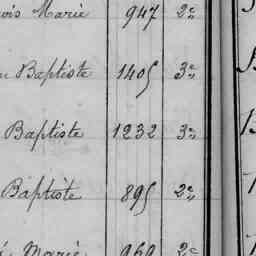 ois Marie 947 2e
Baptiste 1405 3e
Baptiste 1232 3e
Baptiste 895 2e
Marie 960 2e